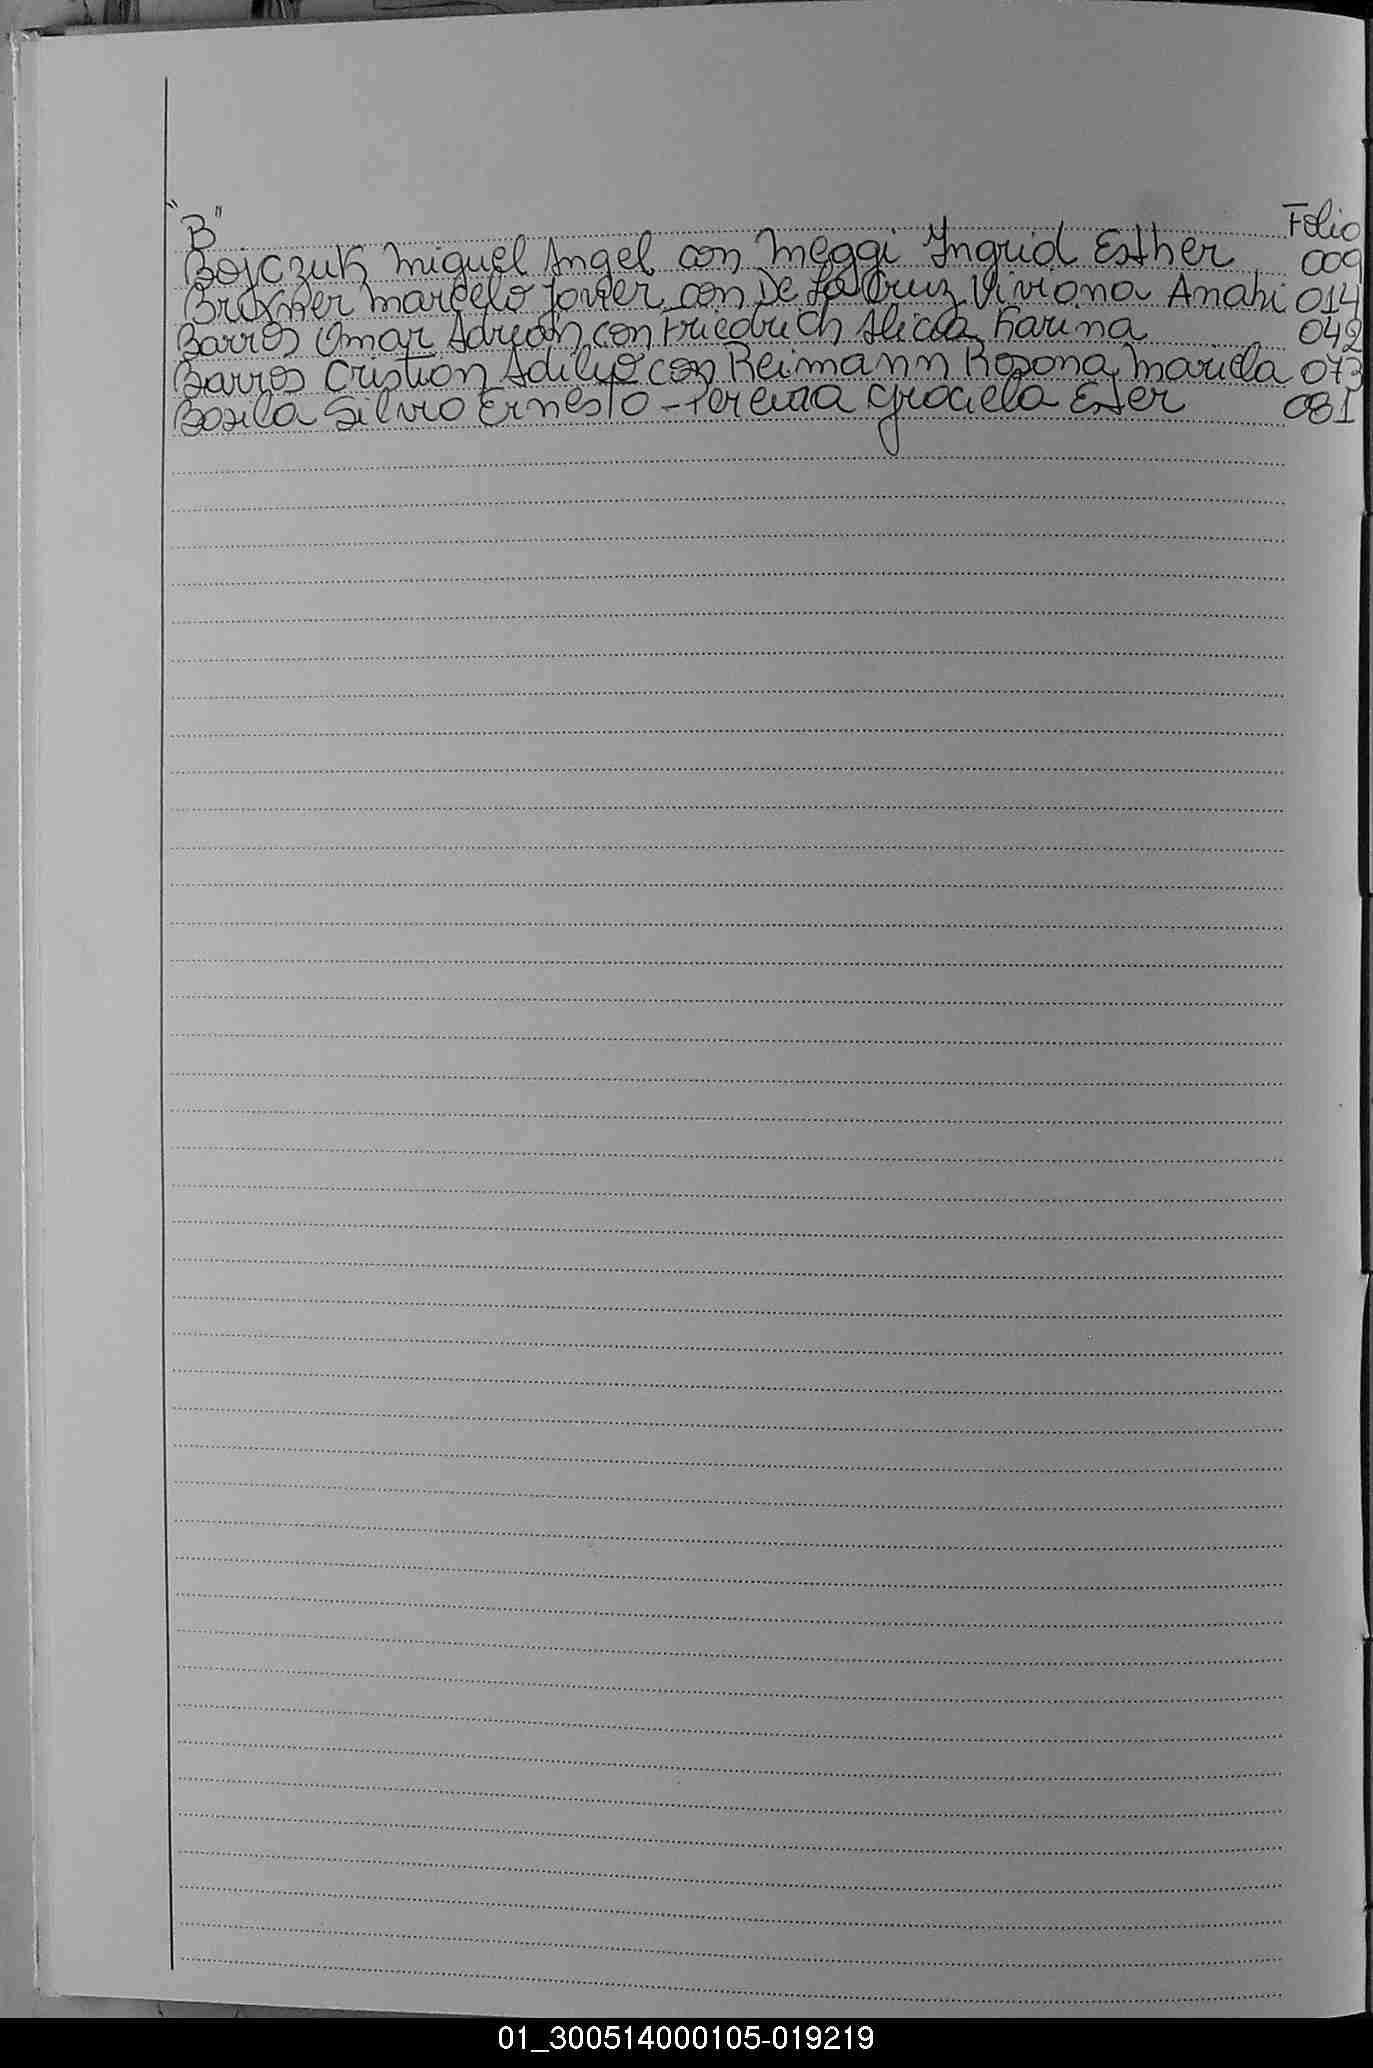 "B" Folio
Bojczuk Miguel Angel con Meggi Yngrid Esther 009
Bruxner Marcelo Javier con De La Cruz Viviana Anahi 014
Barros Omar Adrean con Friedrich Alicia Karina 042
Barros Cristian Adilio con Reimann Rosana Mariela 073
Basila Silvio Ernesto - Pereira Graciela Ester 081
01_300514000105-019219